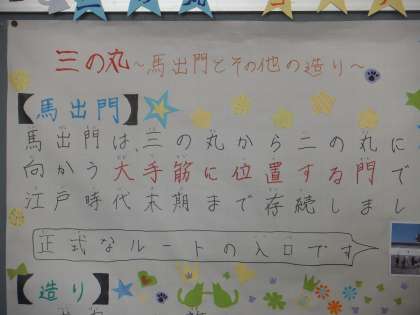 三の丸～馬出門とその他の造り～
【馬出門】
馬出門は、三の丸から二の丸に
向かう大手筋に位置する門で
江戸時代末期まで存続しまし
正式なルートの入口です
【造り】